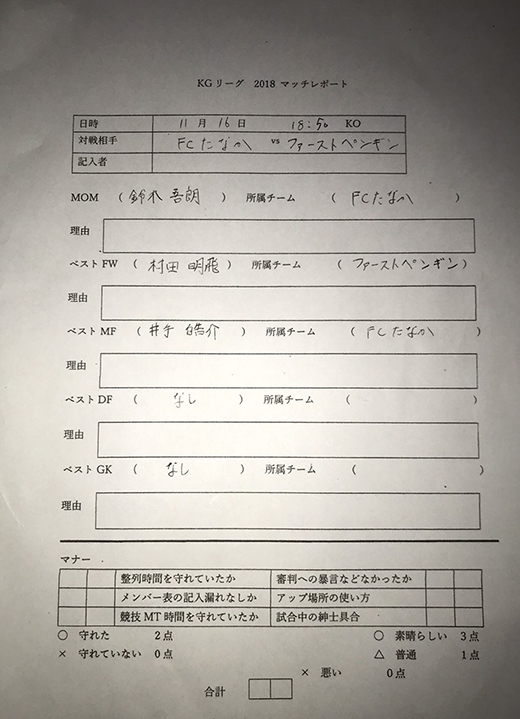 KGリーグ 2018 マッチレポート
日時 11月 16日 18:50 KO
対戦相手 FCたなか vs ファーストペンギン
記入者
MOM （ 鈴木 吾朗 ） 所属チーム （ FCたなか ）
理由
ベストFW （ 村田 明飛 ） 所属チーム （ ファーストペンギン ）
理由
ベストMF （ 井手 皓介 ） 所属チーム （ FCたなか ）
理由
ベストDF （ なし ） 所属チーム （ ）
理由
ベストGK （ なし ） 所属チーム （ ）
理由
マナー
整列時間を守れていたか 審判への暴言などなかったか
メンバー表の記入漏れなしか アップ場所の使い方
競技MT時間を守れていたか 試合中の紳士具合
○ 守れた 2点 ○ 素晴らしい 3点
× 守れていない 0点 △ 普通 1点
× 悪い 0点
合計